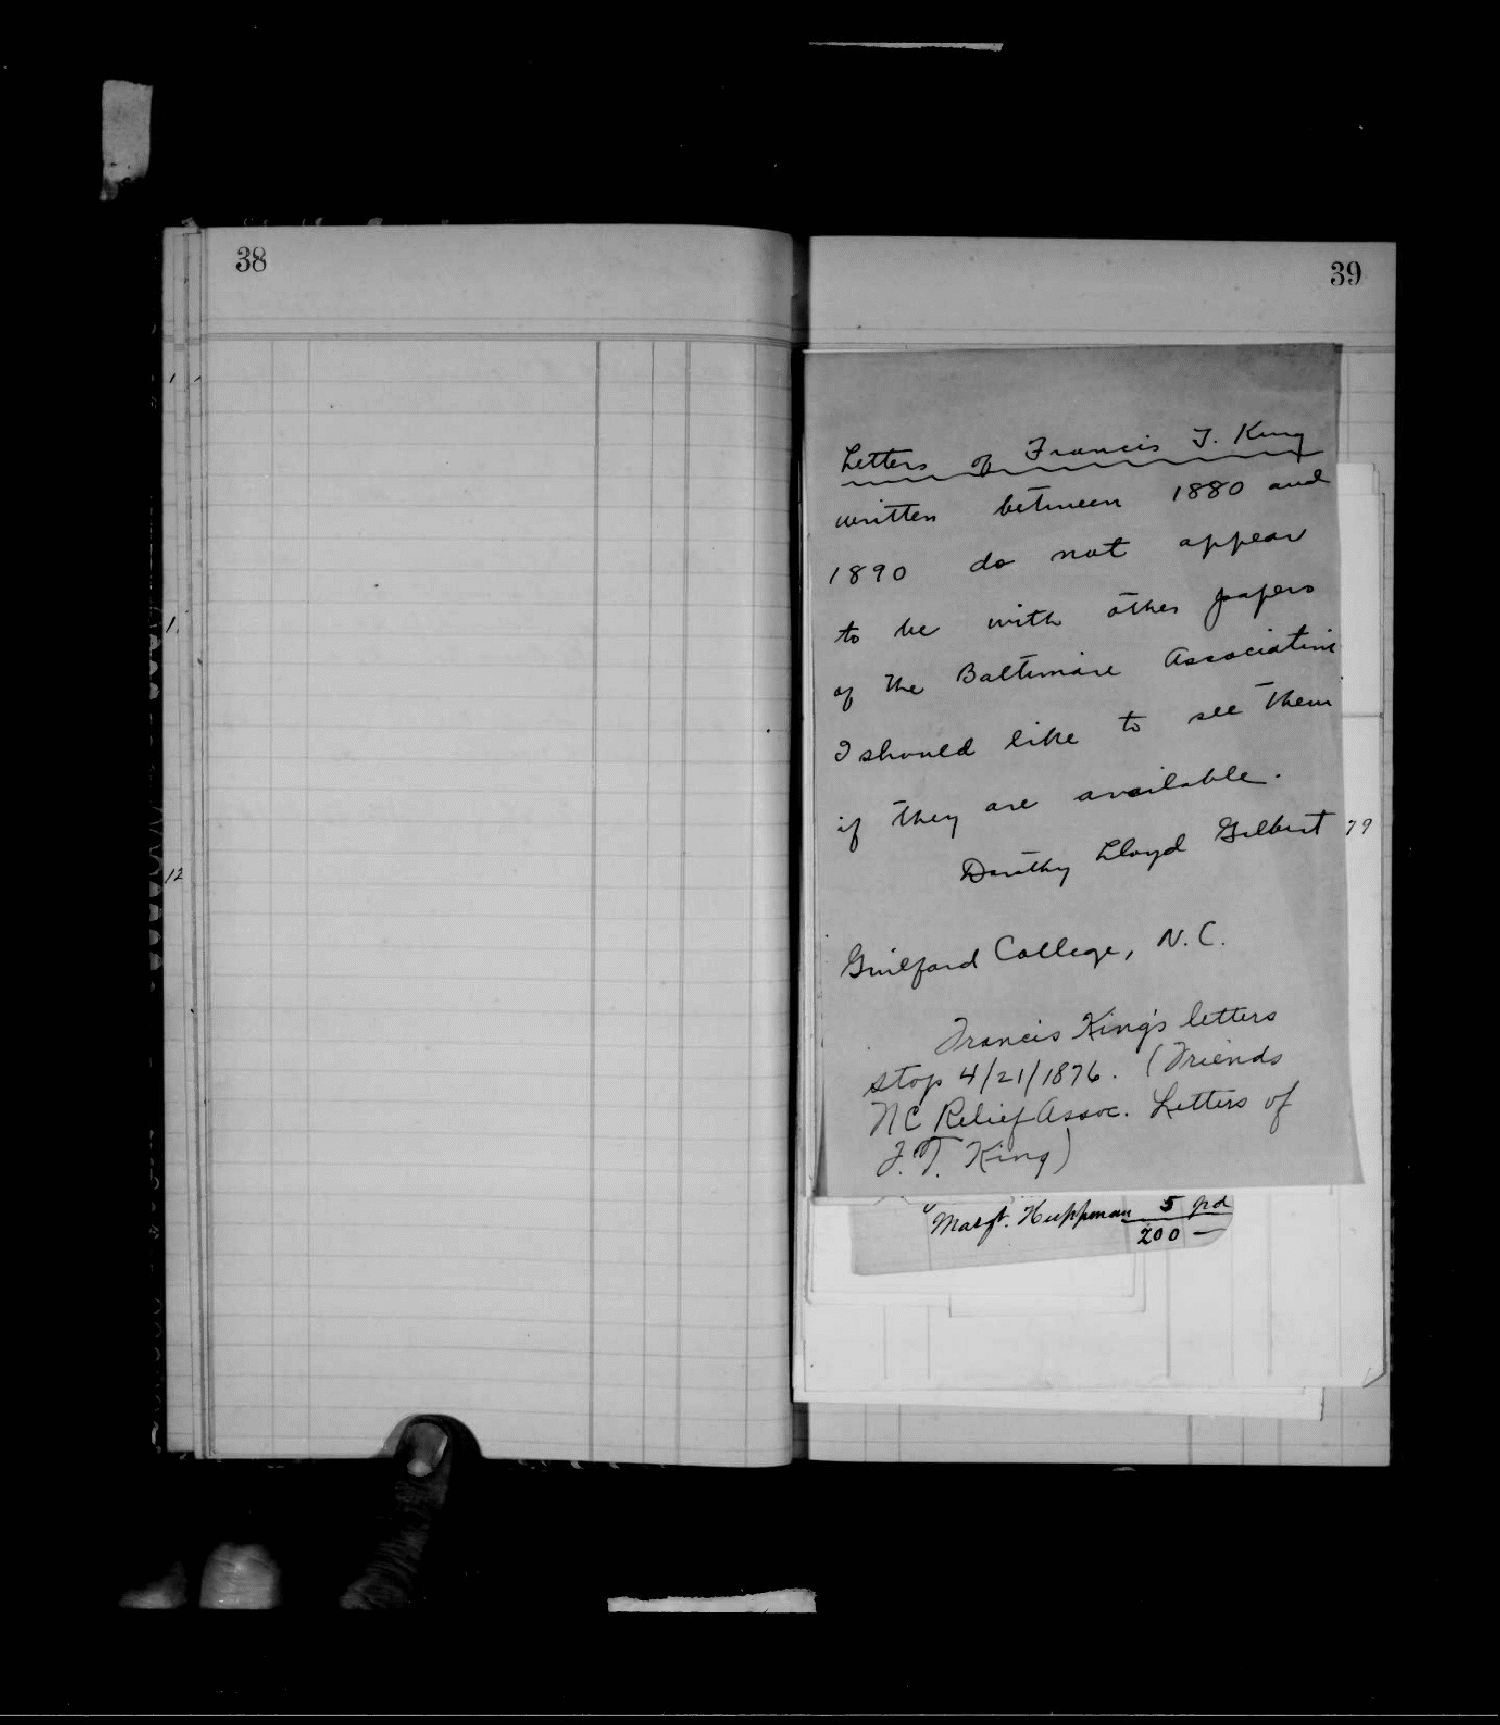 38
39
Letters of Francis T. King
written between 1880 and
1890 do not appear
to be with other papers
of the Baltimore Association
I should like to see them
if they are available.
Dorothy Lloyd Gilbert
79
Guilford College, N.C.
Francis King's letters
stop 4/21/1876. (Friends
NC Relief Assoc. Letters of
F.T. King)
" Margt. Huppman 5 pd
200 —
12